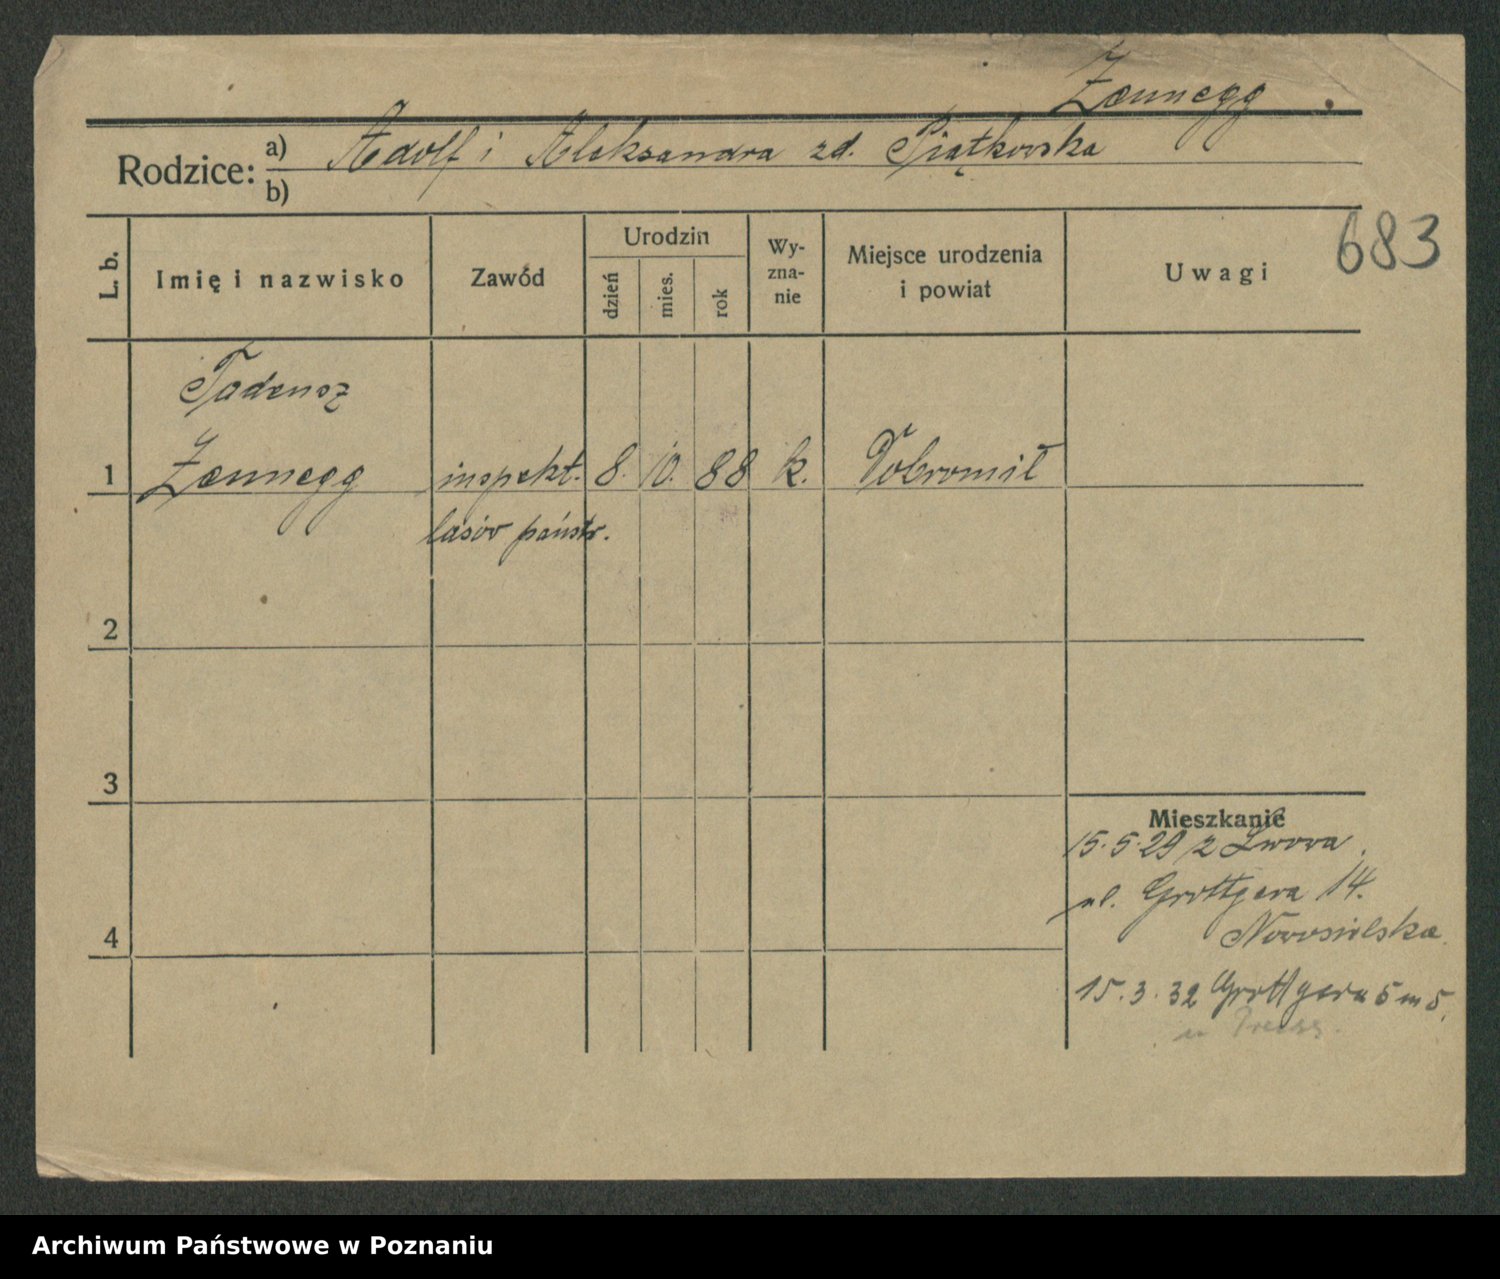 Zennegg
Rodzice: a) Adolf i Aleksandra zd. Piątkowska
b)
683
L. b.
Imię i nazwisko
Zawód
Urodzin
dzień
mies.
rok
Wy-
zna-
nie
Miejsce urodzenia
i powiat
Uwagi
Tadeusz
1 Zennegg inspekt. 8. 10. 88 k. Dobromil
lasów państw.
2
3
4
Mieszkanie
15.5.29 z Lwowa.
ul. Grottgera 14.
Nowosielska
15.3.32 Grottgera 5 m 5.
Archiwum Państwowe w Poznaniu